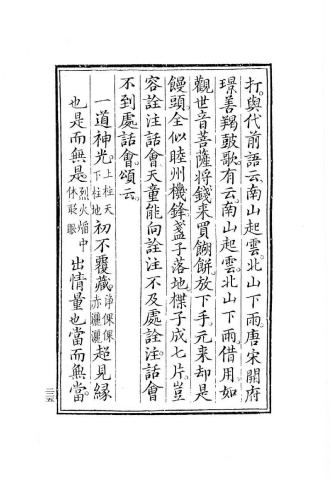 打。與代前語云。南山起雲。北山下雨。唐宋開府
璟善羯鼓。歌有云。南山起雲。北山下雨。借用如
觀世音菩薩將錢來買餬餅。放下手。元來却是
饅頭。全似睦州機鋒。盞子落地。楪子成七片。豈
容詮注話會。天童能向詮注不及處詮注。話會
不到處話會。頌云。
一道神光。上柱天下柱地初不覆藏。淨倮倮赤灑灑超見緣
也是而無是。烈火焰中休眨眼出情量也當而無當。
二三五